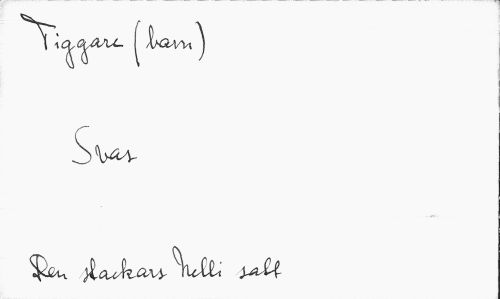 Tiggare (barn)
Svar
Den stackars Nelli satt